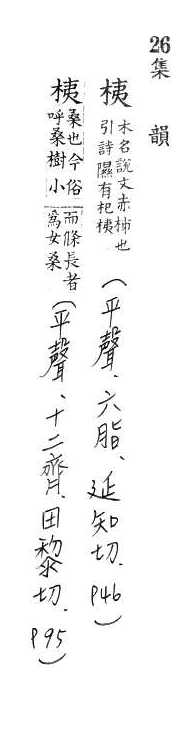 26集 韻
桋 木名說文赤梀也
引詩隰有杞桋
(平聲、六脂、延知切. P46)
桋 桑也今俗
呼桑樹小
而條長者
為女桑
(平聲、十二齊、田黎切. P95)